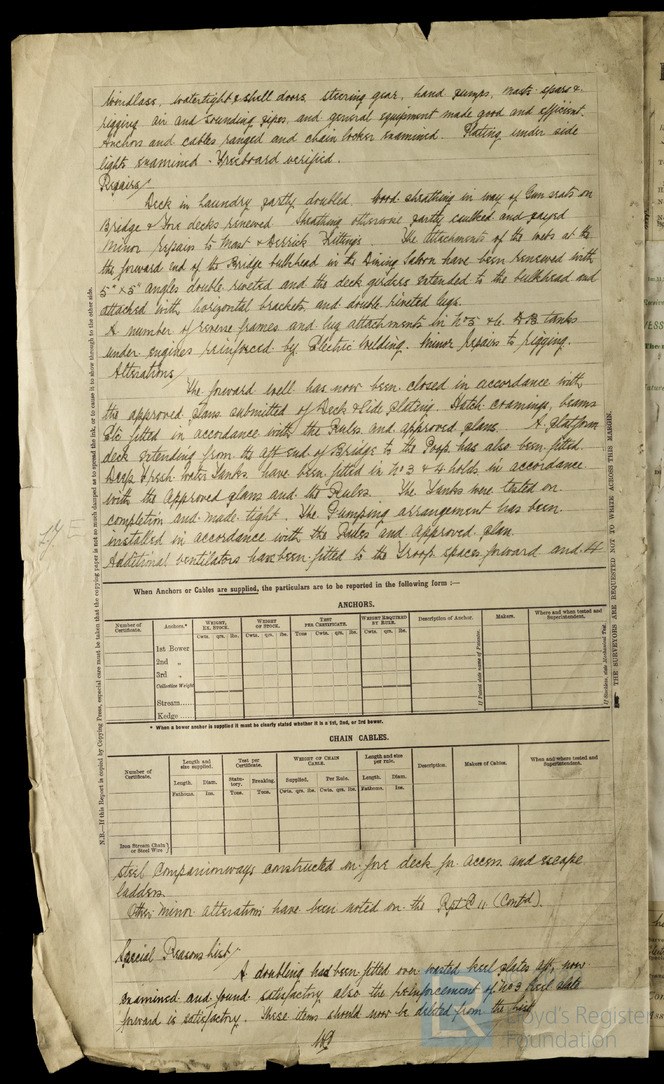 Windlass, watertight & shell doors, steering gear, hand pumps, masts spars &
rigging air and sounding pipes, and general equipment made good and efficient.
Anchors and cables ranged and chain locker examined. Plating under side
lights examined - Freeboard verified.
Repairs/
Deck in Laundry partly doubled. Wood sheathing in way of Gun seats on
Bridge & Fore decks renewed Sheathing otherwise partly caulked and payed
Minor repairs to Mast & Derrick Fittings. The attachments of the webs at the
the forward end of the Bridge bulkhead in the Dining Saloon have been renewed with
5" x 5" angles double riveted and the deck girders extended to the bulkhead and
attached with horizontal brackets, and double riveted lugs.
A number of reverse frames and lug attachments in No 5 & 6 D.B. tanks
under engines reinforced by Electric Welding. Minor repairs to rigging.
Alterations/
The forward well has now been closed in accordance with
the approved plans submitted of Deck & Side plating. Hatch coamings, beams
Etc fitted in accordance with the Rules and approved plans. A platform
deck extending from the aft end of Bridge to the Poop has also been fitted.
Deep Fresh Water Tanks have been fitted in No 3 & 4 holds in accordance
with the Approved plans and the Rules. The Tanks were tested on
completion and made tight. The Pumping arrangement has been
installed in accordance with the Rules and Approved plan.
Additional ventilators have been fitted to the Troop spaces forward and 4
When Anchors or Cables are supplied, the particulars are to be reported in the following form :—
ANCHORS.
Number of Certificate. Anchors.* WEIGHT, EX. STOCK. WEIGHT OF STOCK. TEST PER CERTIFICATE. WEIGHT REQUIRED BY RULE. Description of Anchor. Makers. Where and when tested and Superintendent.
Cwts. qrs. lbs. Cwts. qrs. lbs. Tons Cwts. qrs. lbs. Cwts. qrs. lbs.
1st Bower
2nd „
3rd „
Collective Weight
Stream
Kedge
* When a bower anchor is supplied it must be clearly stated whether it is a 1st, 2nd, or 3rd bower.
CHAIN CABLES.
Number of Certificate. Length and size supplied. Test per Certificate. WEIGHT OF CHAIN CABLE. Length and size per rule. Description. Makers of Cables. When and where tested and Superintendent.
Length. Diam. Statutory. Breaking. Supplied. Per Rule. Length. Diam.
Fathoms. Ins. Tons. Tons. Cwts. qrs. lbs. Cwts. qrs. lbs. Fathoms. Ins.
Iron Stream Chain or Steel Wire
steel Companionways constructed on fore deck for access and escape
ladders.
Other minor alterations have been noted on the Rpt C 11 (Contd).
Special Reasons List/
A doubling had been fitted over wasted keel plates aft, now
examined and found satisfactory also the reinforcement of No 3 keel plate
forward is satisfactory. These items should now be deleted from the list
N.B.—If this Report is copied by Copying Press, especial care must be taken that the copying paper is not so much damped as to spread the ink, or to cause it to show through to the other side.
THE SURVEYORS ARE REQUESTED NOT TO WRITE ACROSS THIS MARGIN.
Lloyd's Register
Foundation